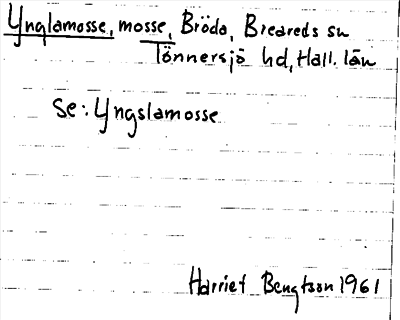 Ynglamosse, mosse, Bröda, Breareds sn
Tönnersjö hd, Hall. län
se: Yngslamosse
Harriet Bengtson 1961